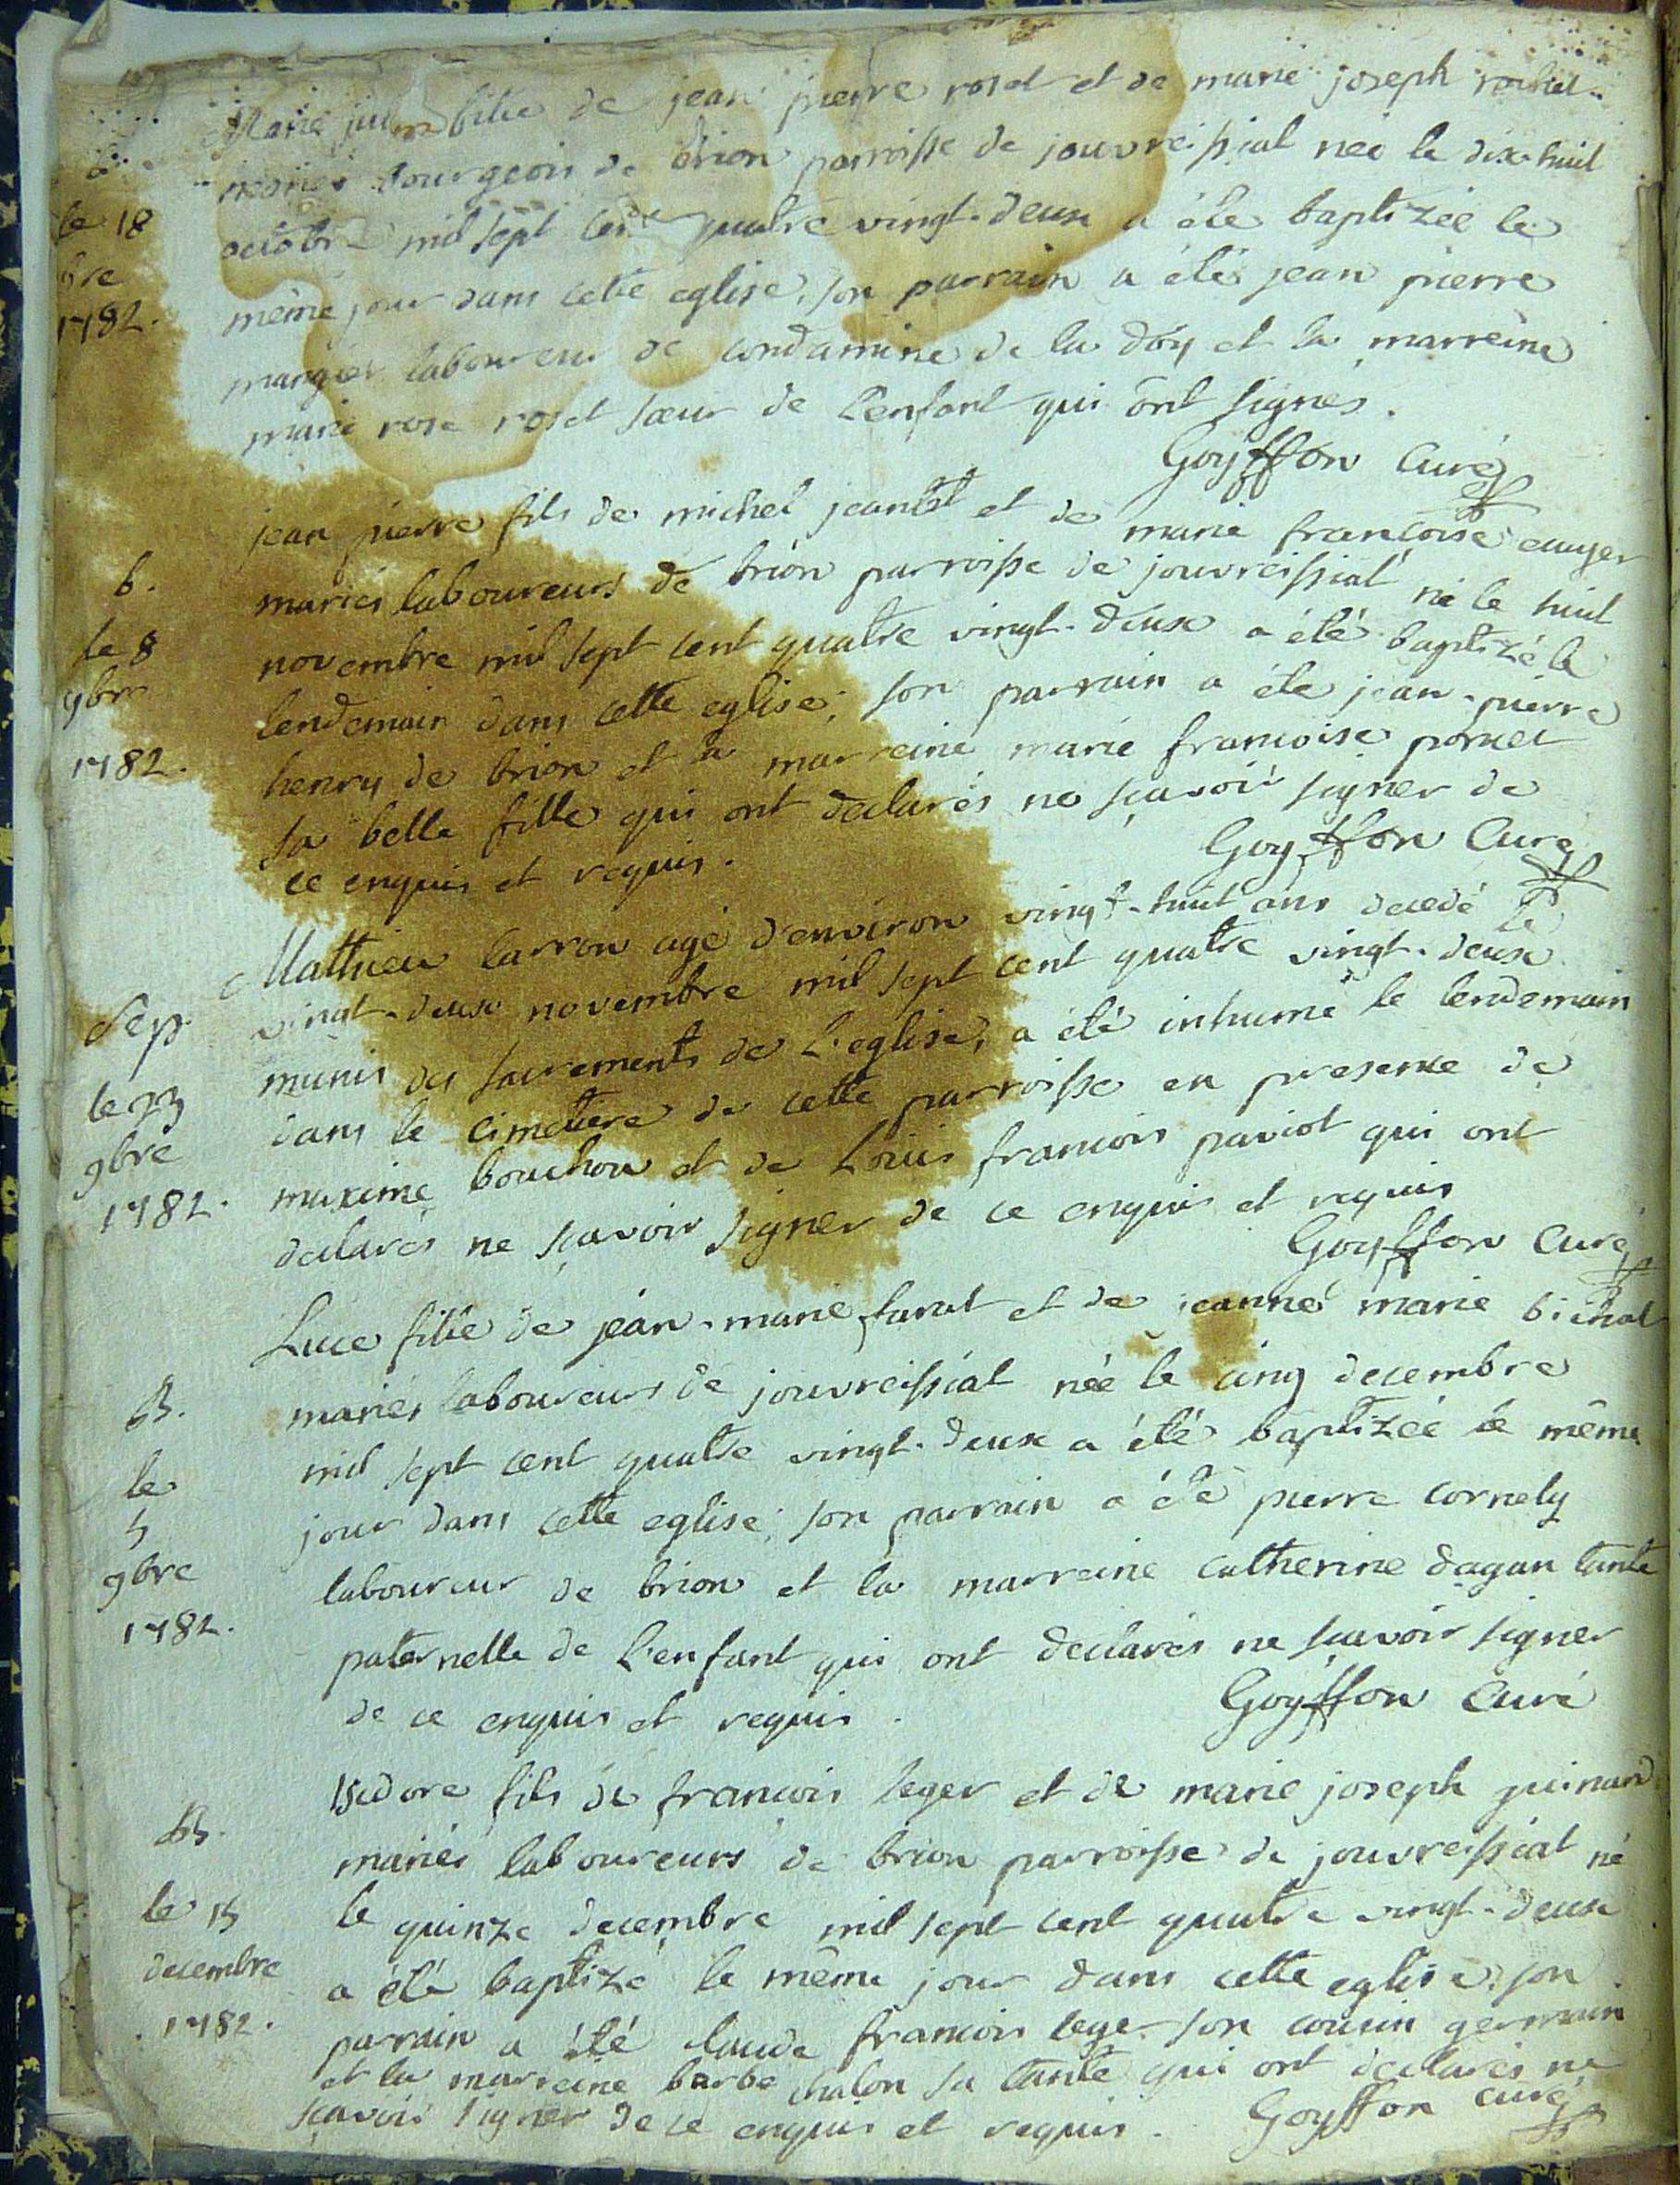 b
le 18
bre
1782.
Marie fille de jean pierre roset et de marie joseph
mariés bourgeois de brion parroisse de jouvreissiat née le dix huit
octobre mil sept cent quatre vingt-deux a été baptizée le
même jour dans cette eglise, son parrain a été jean pierre
laboureur de condamine de la doy et la marreine
marie rose roset sœur de l'enfant qui ont signés.
Goyffon Curé
b.
le 8
9bre
1782.
jean pierre fils de michel jeantet et de marie francoise
mariés laboureurs de brion parroisse de jouvreissiat né le huit
novembre mil sept cent quatre vingt-deux a été baptizé le
lendemain dans cette eglise, son parrain a été jean-pierre
henry de brion et la marreine marie francoise poncet
sa belle fille qui ont declarés ne sçavoir signer de
ce enquis et requis.
Goyffon Curé
Sep.
le 23
9bre
1782.
Mathieu carron agé d'environ vingt-huit ans decedé le
vingt-deux novembre mil sept cent quatre vingt-deux
munis des sacrements de l'eglise, a été inhumé le lendemain
dans le cimetiere de cette parroisse en presence de
maxime bouchou et de Louis francois paviot qui ont
declarés ne sçavoir signer de ce enquis et requis
Goyffon Curé
B.
le
5
9bre
1782.
Luce fille de jean-marie et de jeanne marie bichat
mariés laboureurs de jouvreissiat née le cinq decembre
mil sept cent quatre vingt-deux a été baptizée le même
jour dans cette eglise, son parrain a été pierre cornely
laboureur de brion et la marreine catherine dagan tante
paternelle de l'enfant qui ont declarés ne sçavoir signer
de ce enquis et requis.
Goyffon Curé
B.
le 15
decembre
1782.
isidore fils de francois leger et de marie joseph guinard
mariés laboureurs de brion parroisse de jouvreissiat né
le quinze decembre mil sept cent quatre vingt-deux
a été baptizé le même jour dans cette eglise, son
parrain a été claude francois leger son cousin germain
et la marreine barbe chalon sa tante qui ont declarés ne
sçavoir signer de ce enquis et requis.
Goyffon curé